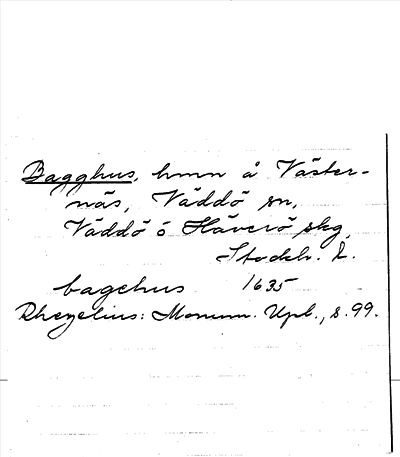 Bagghus, hmn å Väster-
näs, Väddö sn,
Väddö o Häverö skg,
Stockh. L.
bagehus 1635
Rhezelius: Monum. Upl., s. 99.